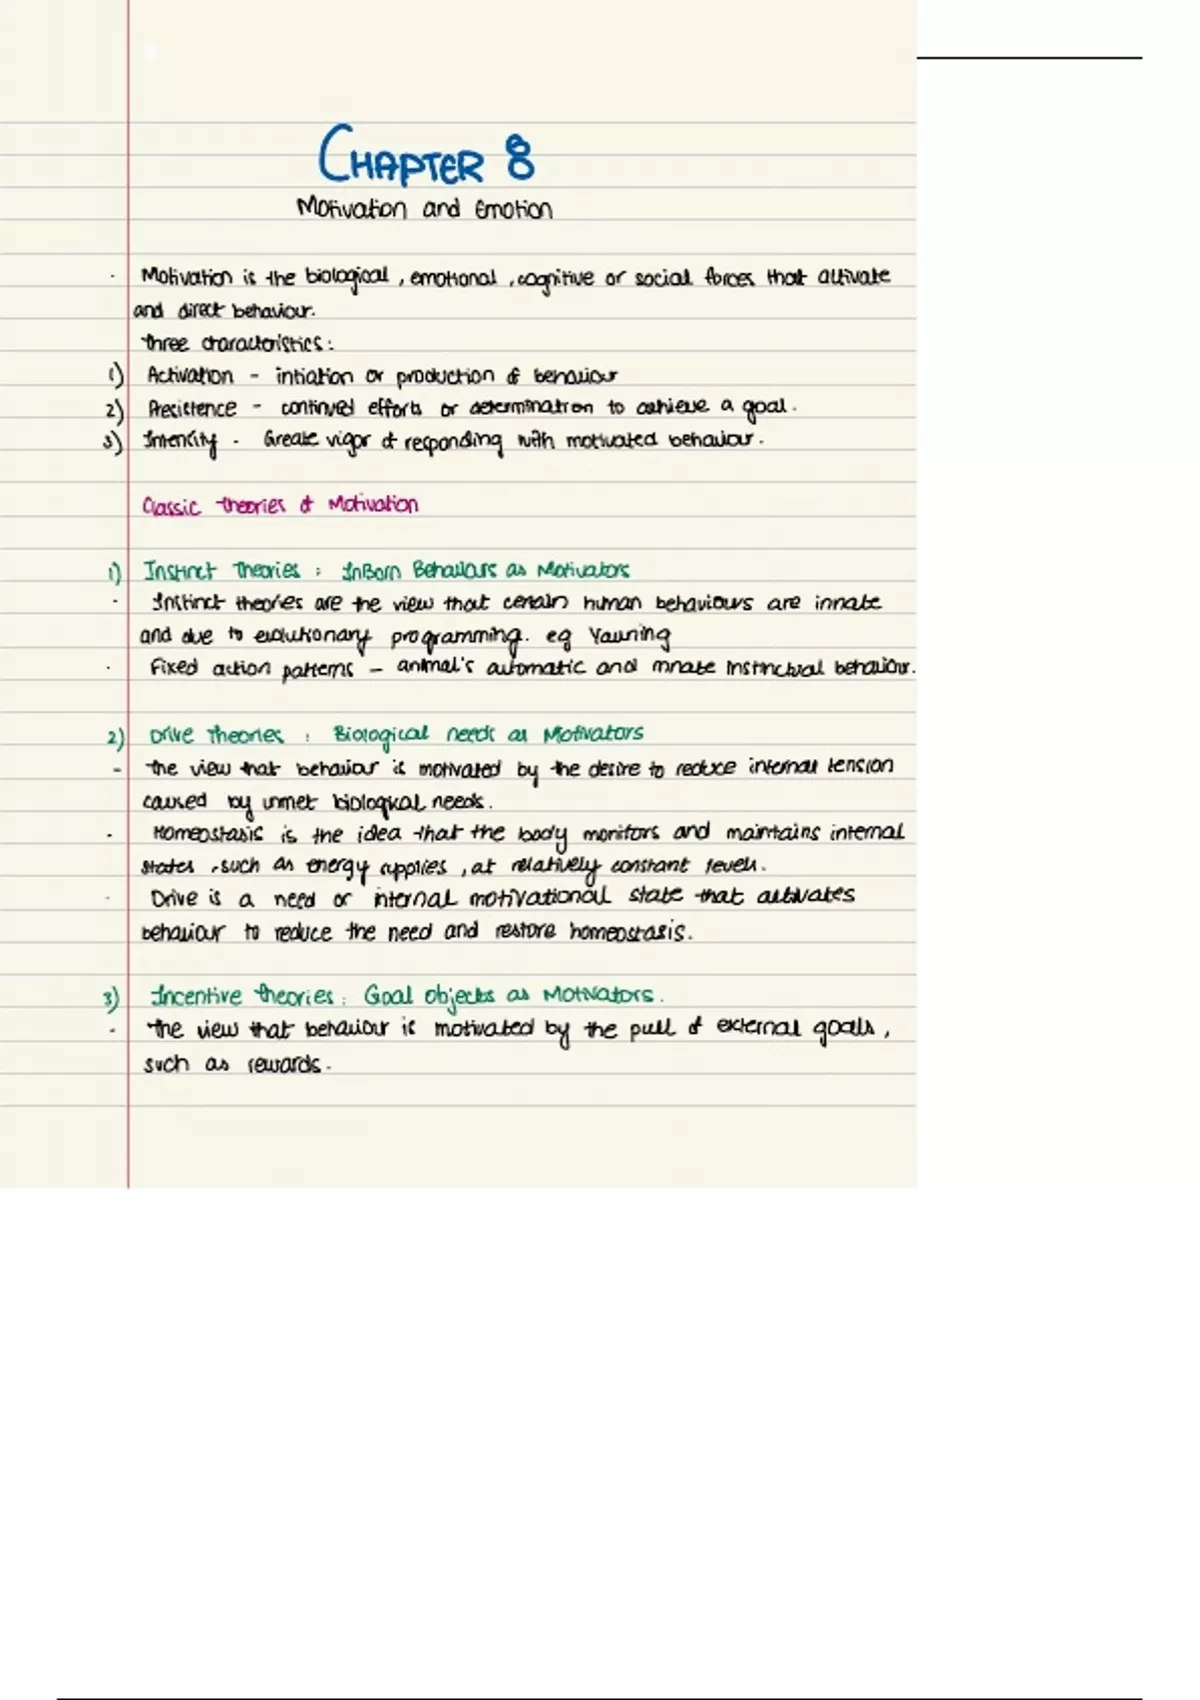 CHAPTER 8
Motivation and Emotion
· Motivation is the biological, emotional, cognitive or social forces that activate
and direct behaviour.
three characteristics:
1) Activation - initiation or production of behaviour
2) Persistence - continued efforts or determination to achieve a goal.
3) Intensity - Greater vigor of responding with motivated behaviour.
Classic theories of Motivation
1) Instinct Theories : InBorn Behaviours as Motivators
· Instinct theories are the view that certain human behaviours are innate
and due to evolutionary programming. eg Yawning
· Fixed action patterns - animal's automatic and innate instinctual behaviour.
2) Drive Theories : Biological needs as Motivators
- the view that behaviour is motivated by the desire to reduce internal tension
caused by unmet biological needs.
· Homeostasis is the idea that the body monitors and maintains internal
states, such as energy supplies, at relatively constant levels.
· Drive is a need or internal motivational state that activates
behaviour to reduce the need and restore homeostasis.
3) Incentive theories: Goal objects as Motivators.
· the view that behaviour is motivated by the pull of external goals,
such as rewards.